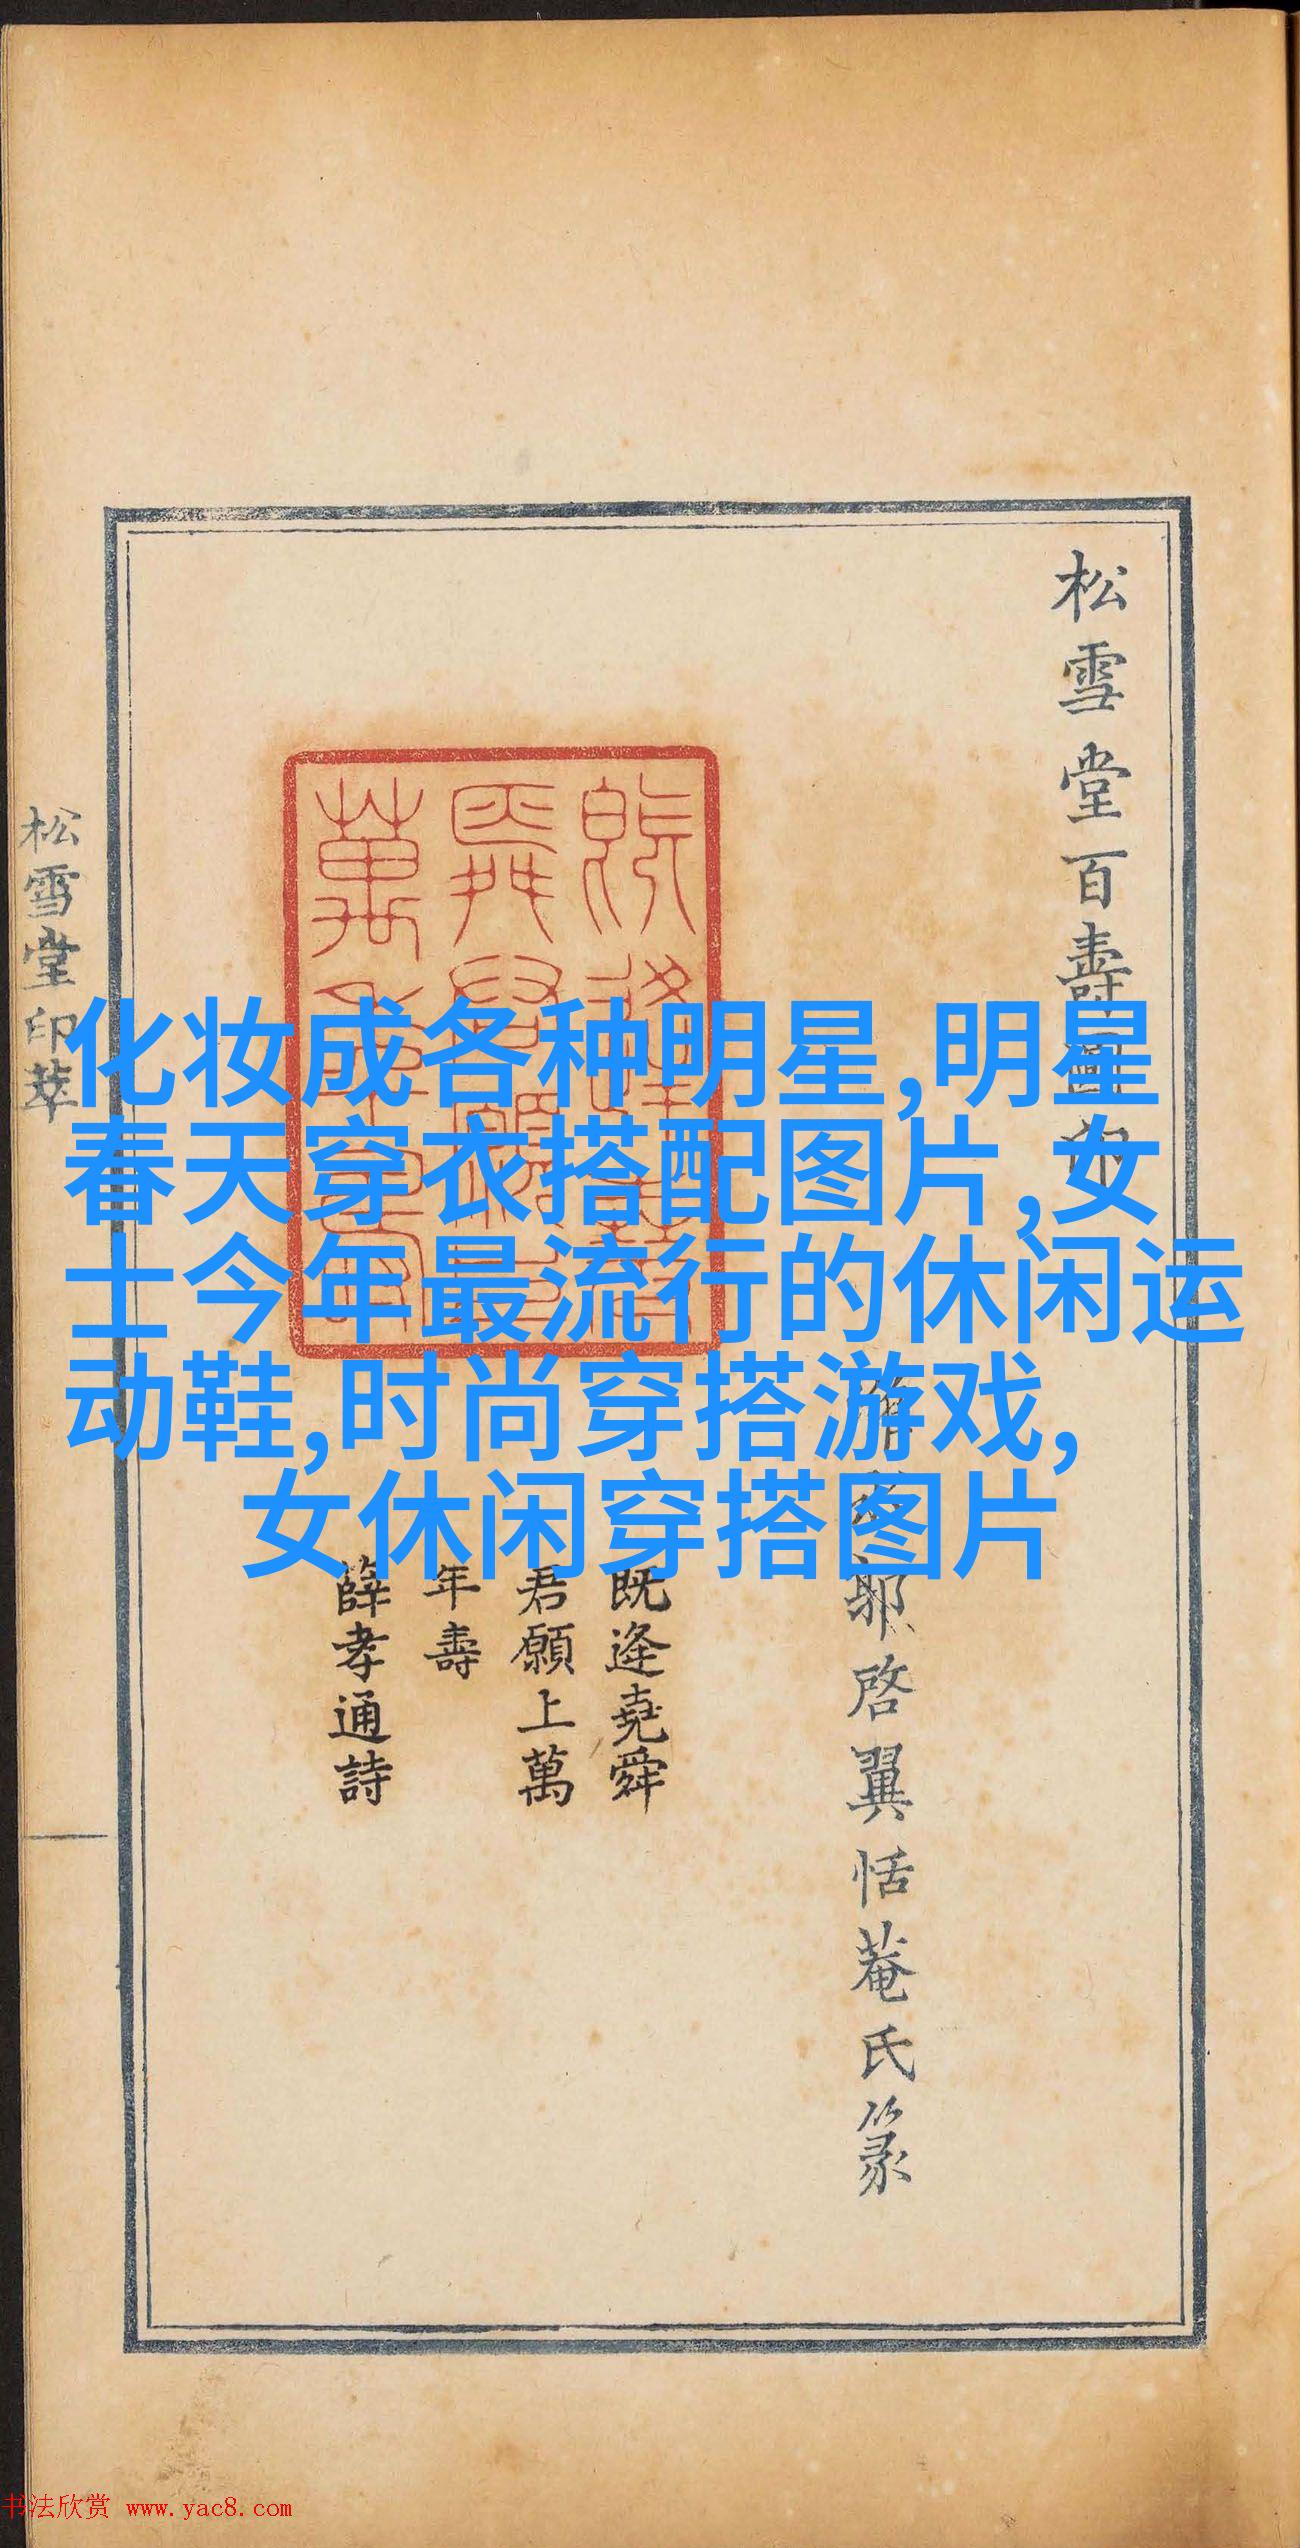 松雪堂百壽圖印
耶啓翼恬菴氏篆
既逢堯舜
君願上萬
年壽
薛孝通詩
松雪堂印萃
化妆成各种明星,明星
春天穿衣搭配图片,女
士今年最流行的休闲运
动鞋,时尚穿搭游戏,
女休闲穿搭图片
书法欣赏 www.yac8.com